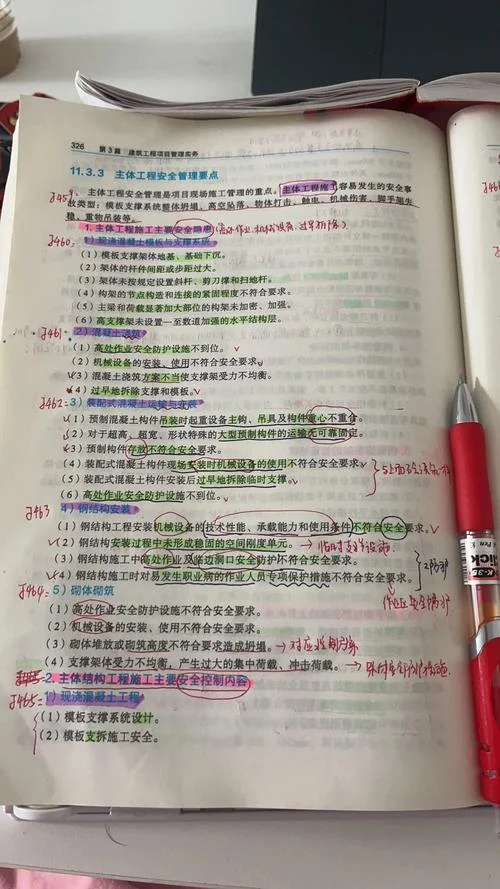 326 第3篇 建筑工程项目管理实务
11.3.3 主体工程安全管理要点
J459 主体工程安全管理是项目现场施工管理的重点。主体工程施工容易发生的安全事
故类型：模板支撑系统整体坍塌、高空坠落、物体打击、触电、机械伤害、脚手架失
稳、重物吊装等。
1. 主体工程施工主要安全隐患
J460 1）现浇混凝土模板与支撑系统
（1）模板支撑架体地基、基础下沉。
（2）架体的杆件间距或步距过大。
（3）架体未按规定设置斜杆、剪刀撑和扫地杆。
（4）构架的节点构造和连接的紧固程度不符合要求。
（5）主梁和荷载显著加大部位的构架未加密、加强。
（6）高支撑架未设置一至数道加强的水平结构层。
J461 2）混凝土浇筑
（1）高处作业安全防护设施不到位。
（2）机械设备的安装、使用不符合安全要求。
（3）混凝土浇筑方案不当使支撑架受力不均衡。
（4）过早地拆除支撑和模板。
J462 3）装配式混凝土运输与安装
（1）预制混凝土构件吊装时起重设备主钩、吊具及构件重心不重合。
（2）对于超高、超宽、形状特殊的大型预制构件的运输无可靠固定。
（3）预制构件存放不符合安全要求。
（4）装配式混凝土构件现场安装时机械设备的使用不符合安全要求。
（5）装配式混凝土构件安装后过早地拆除临时支撑。
（6）高处作业安全防护设施不到位。
J463 4）钢结构安装
（1）钢结构工程安装机械设备的技术性能、承载能力和使用条件不符合安全要求。
（2）钢结构安装过程中未形成稳固的空间刚度单元。→临时支撑设施
（3）钢结构施工中高处作业及临边洞口安全防护不符合安全要求。
（4）钢结构施工时对易发生职业病的作业人员专项保护措施不符合安全要求。
J464 5）砌体砌筑
（1）高处作业安全防护设施不符合安全要求。
（2）机械设备的安装、使用不符合安全要求。
（3）砌体堆放或砌筑高度不符合要求造成坍塌。
（4）支撑架体受力不均衡，产生过大的集中荷载、冲击荷载。
2. 主体结构工程施工主要安全控制内容
J465 1）现浇混凝土工程
（1）模板支撑系统设计。
（2）模板支拆施工安全。